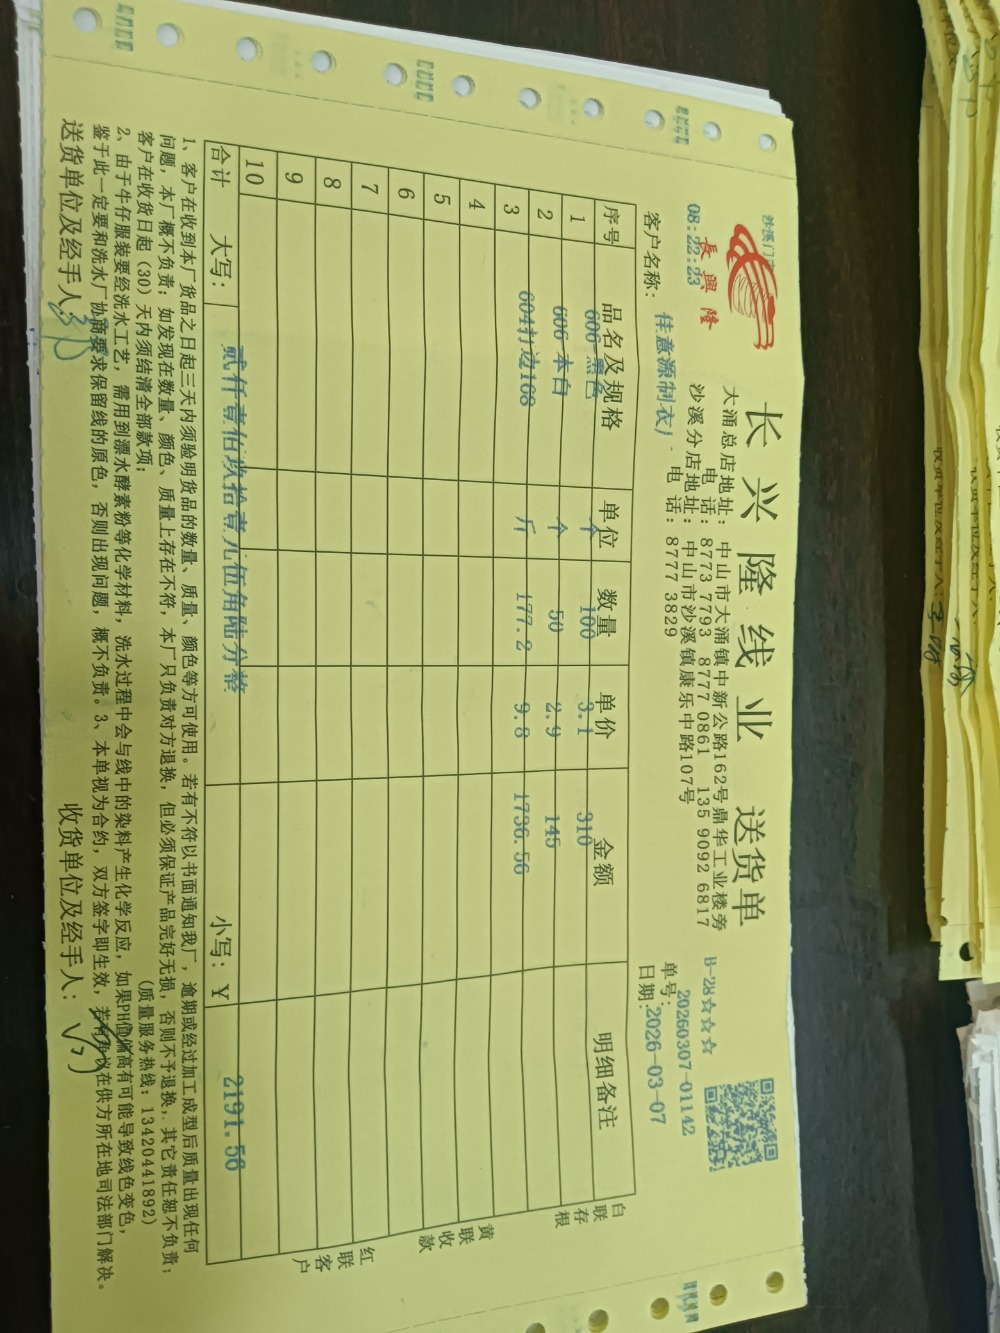 长兴隆线业 送货单
沙溪门
長興隆
08:22:23
大涌总店地址：中山市大涌镇中新公路162号鼎华工业楼旁
电 话：8773 7793 8777 0861 135 9092 6817
沙溪分店地址：中山市沙溪镇康乐中路107号
电 话：8777 3829
B-28☆☆☆
单号：20260307-01142
日期：2026-03-07
客户名称：佳意源制衣厂
序号 品名及规格 单位 数量 单价 金额 明细备注
1 606-黑色 个 100 3.1 310
2 606-本白 个 50 2.9 145
3 604打边168 斤 177.2 9.8 1736.56
4
5
6
7
8
9
10
合计 大写： 贰仟壹佰玖拾壹元伍角陆分整 小写：￥ 2191.56
白联存根
黄联收款
红联客户
1、客户在收到本厂货品之日起三天内须验明货品的数量、质量、颜色等方可使用。若有不符以书面通知我厂，逾期或经过加工成型后质量出现任何
问题，本厂概不负责；如发现在数量、颜色、质量上存在不符，本厂只负责对方退换，但必须保证产品完好无损，否则不予退换，其它责任恕不负责；
客户在收货日起（30）天内须结清全部款项； （质量服务热线：13420441892）
2、由于牛仔服装要经洗水工艺，需用到漂水酵素粉等化学材料，洗水过程中会与线中的染料产生化学反应，如果PH值偏高有可能导致线色变色，
鉴于此一定要和洗水厂协商要求保留线的原色，否则出现问题，概不负责。3、本单视为合约，双方签字即生效，若有争议在供方所在地司法部门解决。
送货单位及经手人： 收货单位及经手人：